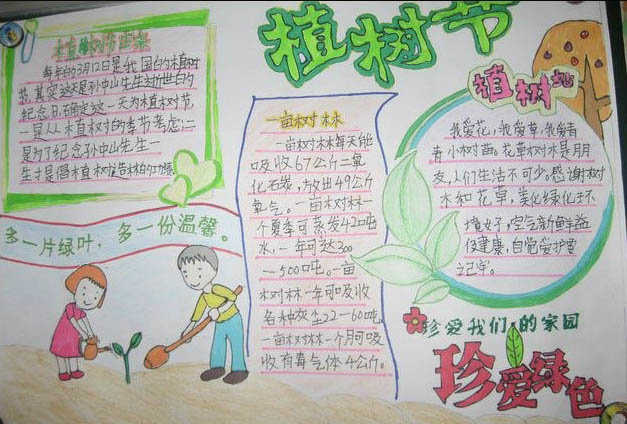 植树节
植树节由来
每年的3月12日是我国的植树
节,其实这天是孙中山先生逝世的
纪念日,确定这一天为植树节,
一是从植树的季节考虑;二
是为了纪念孙中山先生一
生才是倡植树造林的功绩
多一片绿叶,多一份温馨。
一亩树林
一亩树林每天能
吸收67公斤二氧
化石炭,放出49公斤
氧气。一亩树林一
个夏季可蒸发42吨
水,一年可达300
—500吨。一亩
树林一年可吸收
各种灰尘22—60吨
一亩树林一个月可吸
收有毒气体4公斤。
植树
我爱花,我爱草,我爱青
青小树苗。花草树木是朋
友,人们生活不可少。感谢树
木和花草,美化绿化环
境好,空气新鲜益
健康,自觉爱护要
记牢。
珍爱我们的家园
珍爱绿色